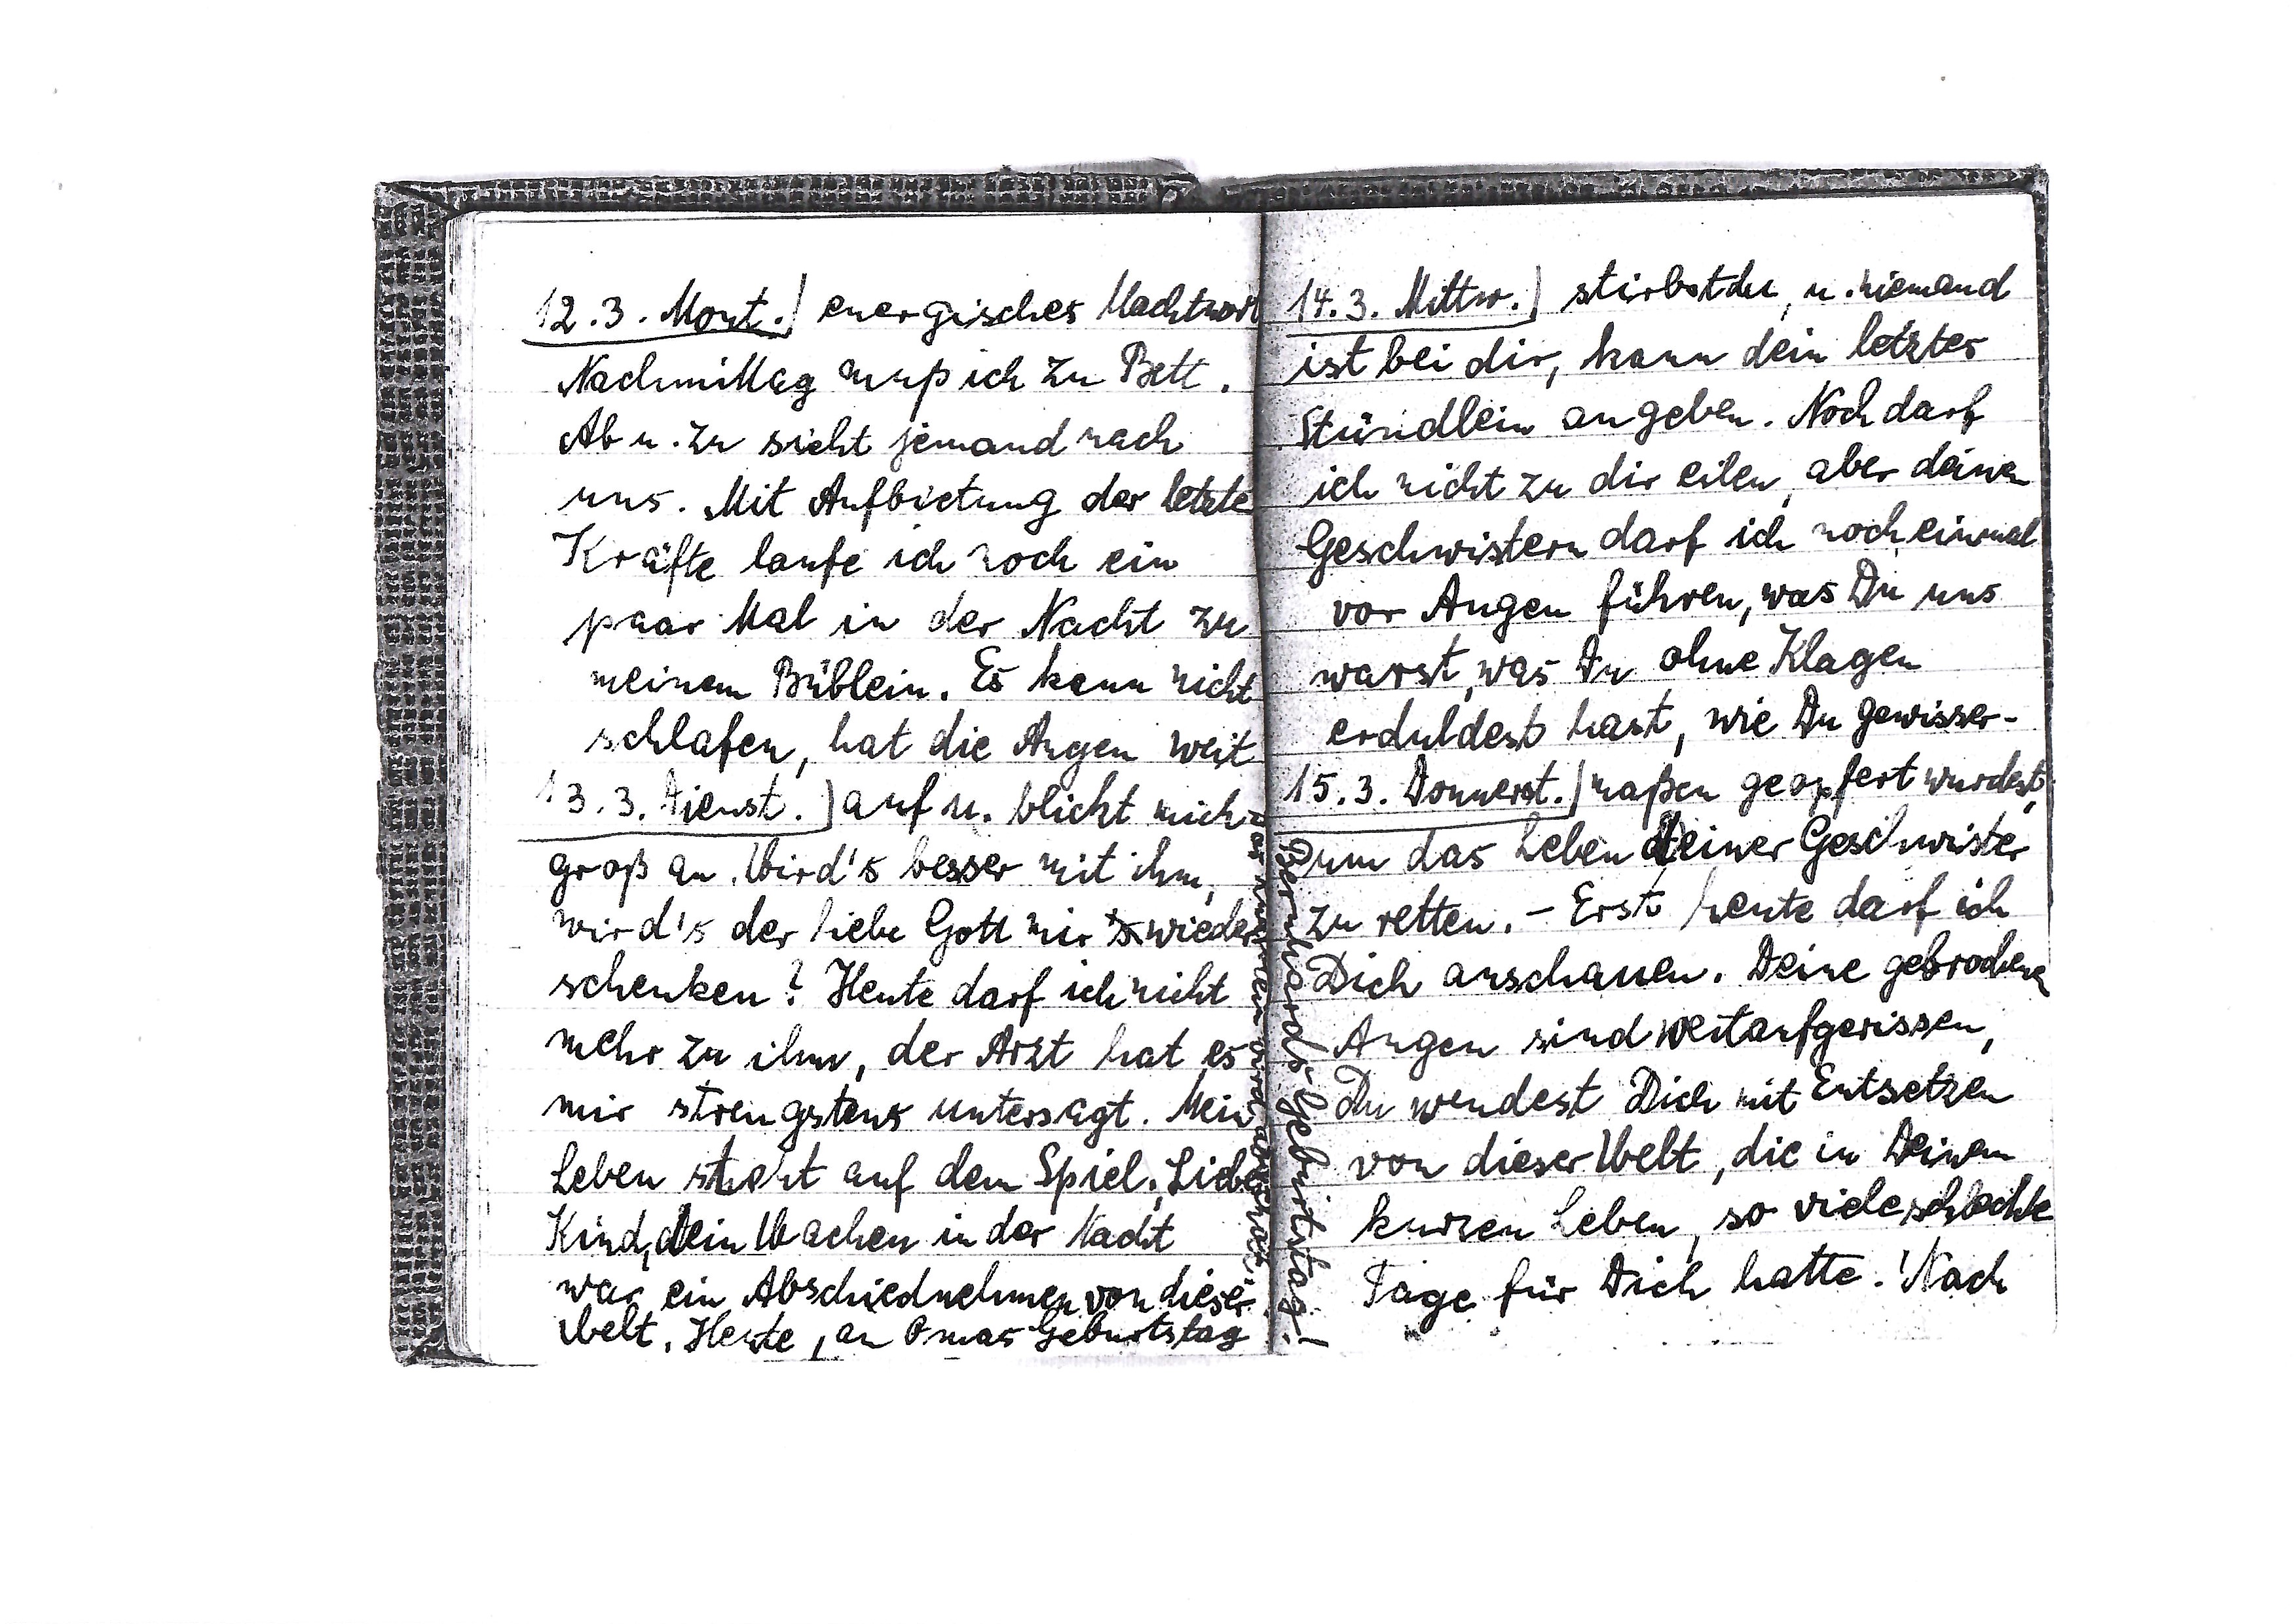 12.3. Mont.) energisches Machtwort
Nachmittag muß ich zu Bett.
Ab u. zu sieht jemand nach
uns. Mit Aufbietung der letzte
Kräfte laufe ich noch ein
paar Mal in der Nacht zu
meinem Büblein. Es kann nicht
schlafen, hat die Augen weit
13.3. Dienst.) auf u. blickt mich
groß an. Wird's besser mit ihm,
wird's der liebe Gott mir wieder
schenken? Heute darf ich nicht
mehr zu ihm, der Arzt hat es
mir strengstens untersagt. Mein
Leben steht auf dem Spiel. Liebes
Kind, dein Wachen in der Nacht
war ein Abschiednehmen von dieser
Welt. Heute, an Omas Geburtstag
Bernhards Geburtstag!
14.3. Mittw.) stirbst du, u. niemand
ist bei dir, kann dein letztes
Stündlein angeben. Noch darf
ich nicht zu dir eilen, aber deinen
Geschwistern darf ich noch einmal
vor Augen führen, was Du uns
warst, was Du ohne Klagen
erduldest hast, wie Du gewisser-
15.3. Donnerst.) maßen geopfert wurdest,
um das Leben Deiner Geschwister
zu retten. – Erst heute darf ich
Dich anschauen. Deine gebrochene
Augen sind weitaufgerissen,
Du wendest Dich mit Entsetzen
von dieser Welt, die in Deinem
kurzen Leben, so viele schlechte
Tage für Dich hatte. Nach